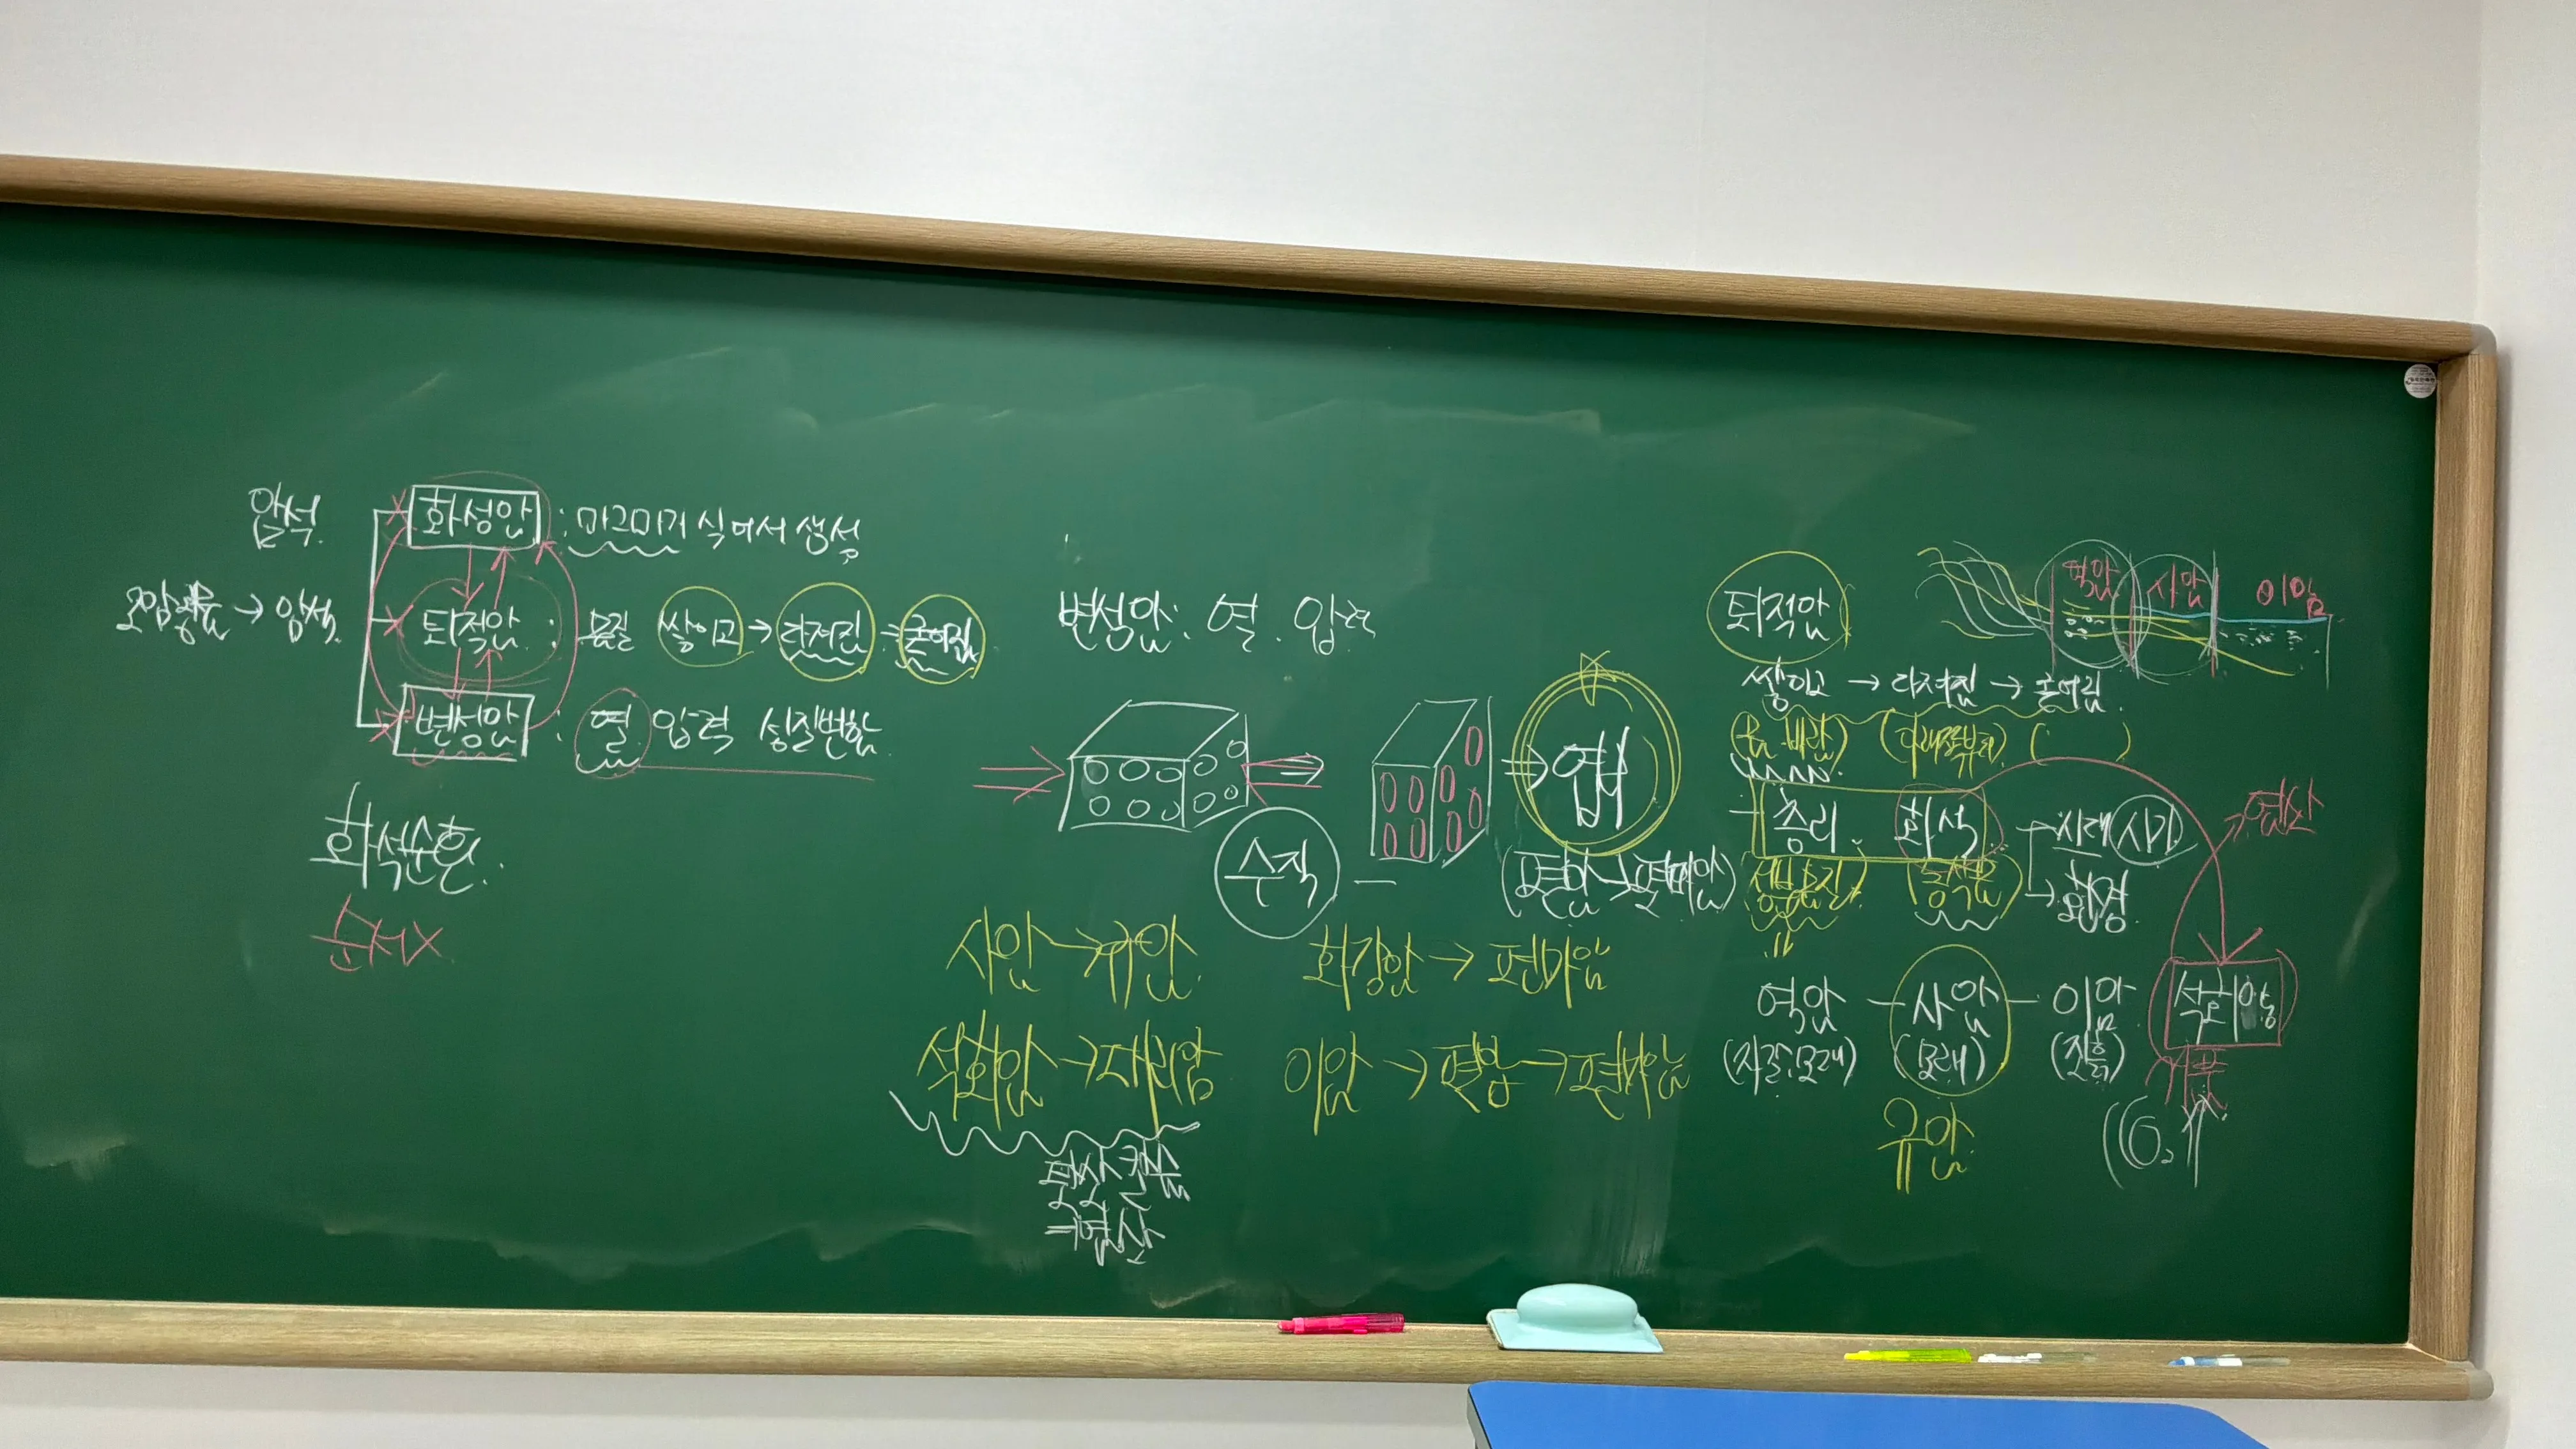 암석
화성암 : 마그마가 식어서 생성
→ 암석
퇴적암 : 물질 쌓이고 → 다져짐 → 굳어짐
변성암 : 열 압력 성질변함
화석순환.
순서X
변성암: 열. 압력
수직
엽리
(편암→편마암)
사암→규암
화강암→편마암
석회암→대리암
이암→편암→편마암
묽은염산
퇴적암
역암 사암 이암
쌓이고 → 다져짐 → 굳어짐
층리. 화석
시대(시기)
환경
염산
역암 — 사암 — 이암
(자갈, 모래) (모래) (진흙)
규암
석회암
기포